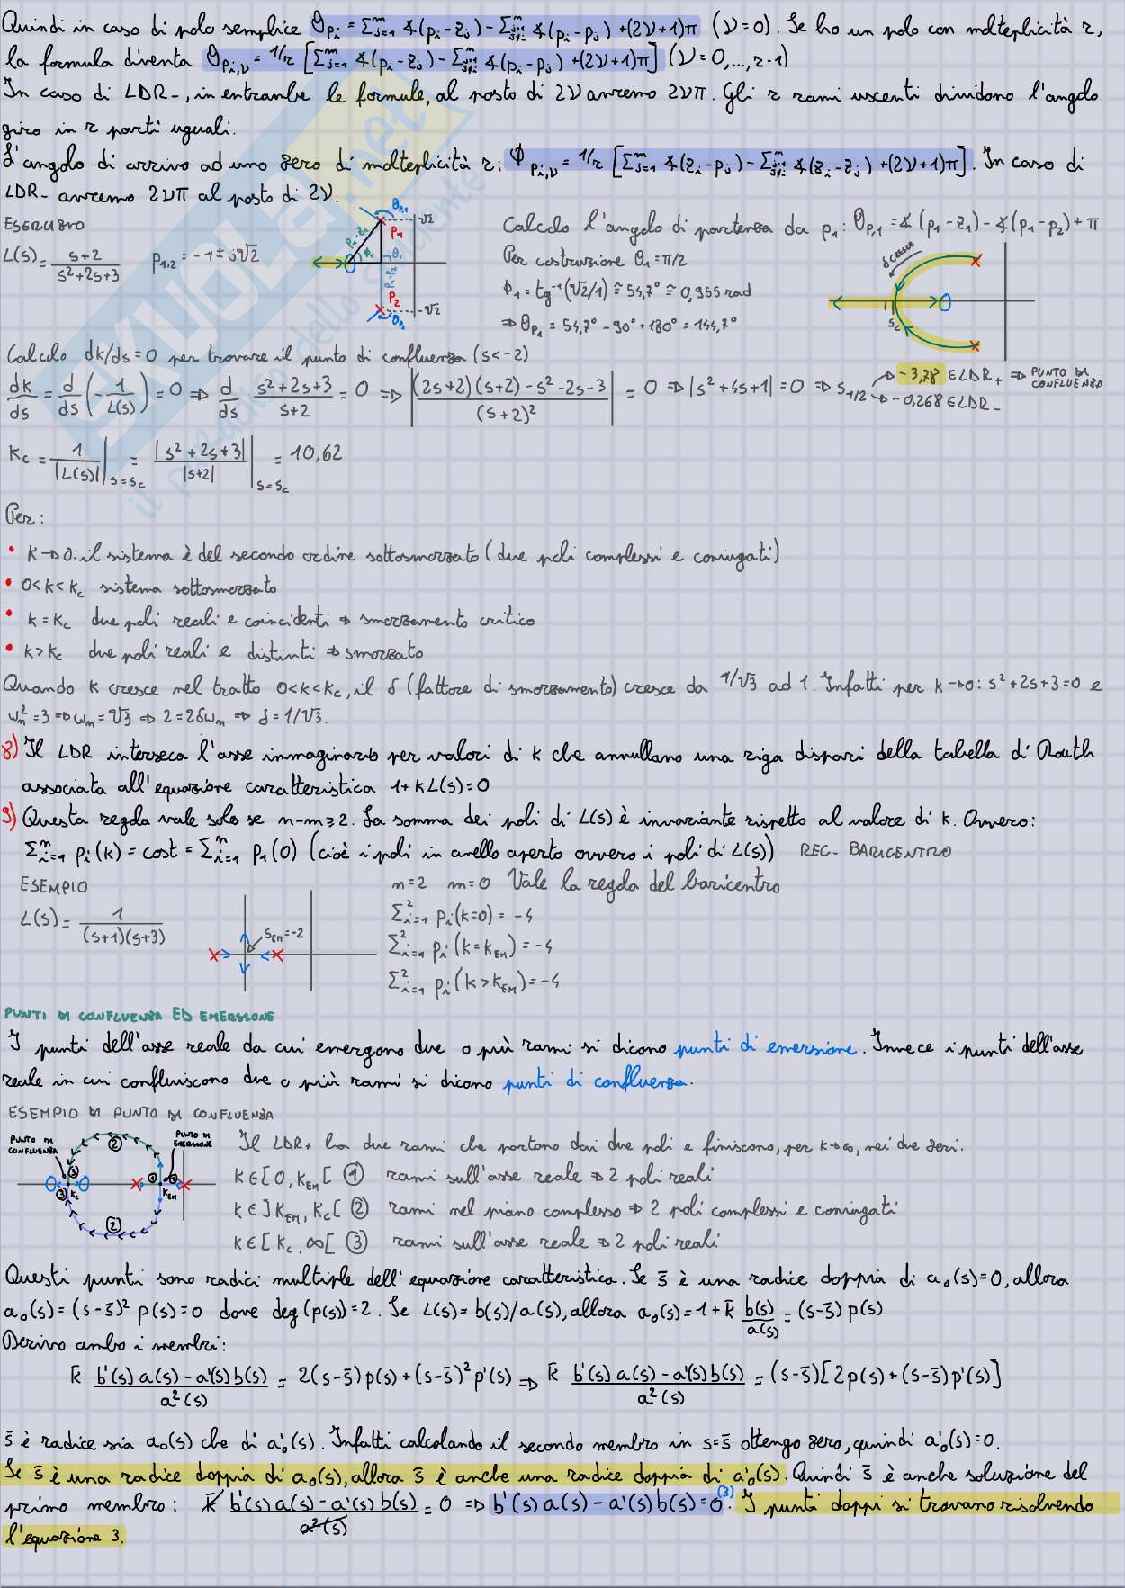 Quindi in caso di polo semplice θpᵢ = Σᵐⱼ₌₁ ∡(pᵢ-zⱼ) - Σⁿⱼ₌₁,ⱼ≠ᵢ ∡(pᵢ-pⱼ) + (2ν+1)π (ν=0). Se ho un polo con molteplicità r,
la formula diventa θpᵢ,ν = 1/r [Σᵐⱼ₌₁ ∡(pᵢ-zⱼ) - Σ ∡(pᵢ-pⱼ) + (2ν+1)π] (ν=0,...,r-1)
In caso di LDR-, in entrambe le formule, al posto di 2ν avremo 2νπ. Gli r rami uscenti dividono l'angolo
giro in r parti uguali.
L'angolo di arrivo ad uno zero di molteplicità r: φpᵢ,ν = 1/r [Σᵐⱼ₌₁ ∡(zᵢ-pⱼ) - Σ ∡(zᵢ-zⱼ) + (2ν+1)π]. In caso di
LDR- avremo 2νπ al posto di 2ν.
ESERCIZIO
L(s) = s+2 / s²+2s+3   p₁,₂ = -1 ± j√2
√2
p₁
p₂
-√2
Calcolo l'angolo di partenza da p₁: θp,₁ = ∡(p₁-z₁) - ∡(p₁-p₂) + π
Per costruzione θ₁ = π/2
φ₁ = tg⁻¹(√2/1) ≅ 54,7° ≅ 0,955 rad
⇒ θp₁ = 54,7° - 90° + 180° = 144,7°
Calcolo dk/ds = 0 per trovare il punto di confluenza (s<-2)
dk/ds = d/ds (-1/L(s)) = 0 ⇒ d/ds s²+2s+3 / s+2 = 0 ⇒ |(2s+2)(s+2) - s² - 2s - 3 / (s+2)²| = 0 ⇒ |s²+4s+1| = 0 ⇒ s₁/₂ → -3,78 ∈ LDR+ ⇒ PUNTO DI CONFLUENZA
→ -0,268 ∈ LDR-
Kc = 1/|L(s)| |s=sc = |s²+2s+3| / |s+2| |s=sc = 10,62
Per:
• k→0. il sistema è del secondo ordine sottosmorzato (due poli complessi e coniugati)
• 0<k<kc sistema sottosmorzato
• k=kc due poli reali e coincidenti ⇒ smorzamento critico
• k>kc due poli reali e distinti ⇒ smorzato
Quando k cresce nel tratto 0<k<kc, il δ (fattore di smorzamento) cresce da 1/√3 ad 1. Infatti per k→0: s²+2s+3=0 e
ωn²=3 ⇒ ωn=√3 ⇒ 2=2δωn ⇒ δ=1/√3.
8) Il LDR interseca l'asse immaginario per valori di k che annullano una riga dispari della tabella di Routh
associata all'equazione caratteristica 1+kL(s)=0
9) Questa regola vale solo se n-m≥2. La somma dei poli di L(s) è invariante rispetto al valore di k. Ovvero:
Σⁿᵢ₌₁ pᵢ(k) = cost = Σⁿᵢ₌₁ pᵢ(0) (cioè i poli in anello aperto ovvero i poli di L(s)) REG. BARICENTRO
ESEMPIO
L(s) = 1 / (s+1)(s+3)
sEM=-2
n=2 m=0 Vale la regola del baricentro
Σ²ᵢ₌₁ pᵢ(k=0) = -4
Σ²ᵢ₌₁ pᵢ(k=kEM) = -4
Σ²ᵢ₌₁ pᵢ(k>kEM) = -4
PUNTI DI CONFLUENZA ED EMERSIONE
I punti dell'asse reale da cui emergono due o più rami si dicono punti di emersione. Invece i punti dell'asse
reale in cui confluiscono due o più rami si dicono punti di confluenza.
ESEMPIO DI PUNTO DI CONFLUENZA
PUNTO DI CONFLUENZA
PUNTO DI EMERSIONE
Il LDR+ ha due rami che partono dai due poli e finiscono, per k→∞, nei due zeri.
k∈[0, kEM[ ① rami sull'asse reale ⇒ 2 poli reali
k∈]kEM, kc[ ② rami nel piano complesso ⇒ 2 poli complessi e coniugati
k∈[kc, ∞[ ③ rami sull'asse reale ⇒ 2 poli reali
Questi punti sono radici multiple dell'equazione caratteristica. Se s̄ è una radice doppia di a₀(s)=0, allora
a₀(s) = (s-s̄)² p(s) = 0 dove deg(p(s))=2. Se L(s)=b(s)/a(s), allora a₀(s) = 1+k̄ b(s)/a(s) = (s-s̄) p(s)
Derivo ambo i membri:
k̄ b'(s)a(s) - a'(s)b(s) / a²(s) = 2(s-s̄)p(s) + (s-s̄)² p'(s) ⇒ k̄ b'(s)a(s) - a'(s)b(s) / a²(s) = (s-s̄)[2p(s) + (s-s̄)p'(s)]
s̄ è radice sia a₀(s) che di a₀'(s). Infatti calcolando il secondo membro in s=s̄ ottengo zero, quindi a₀'(s)=0.
Se s̄ è una radice doppia di a₀(s), allora s̄ è anche una radice doppia di a₀'(s). Quindi s̄ è anche soluzione del
primo membro: k̄ b'(s)a(s) - a'(s)b(s) / a²(s) = 0 ⇒ b'(s)a(s) - a'(s)b(s) = 0 (3). I punti doppi si trovano risolvendo
l'equazione 3.